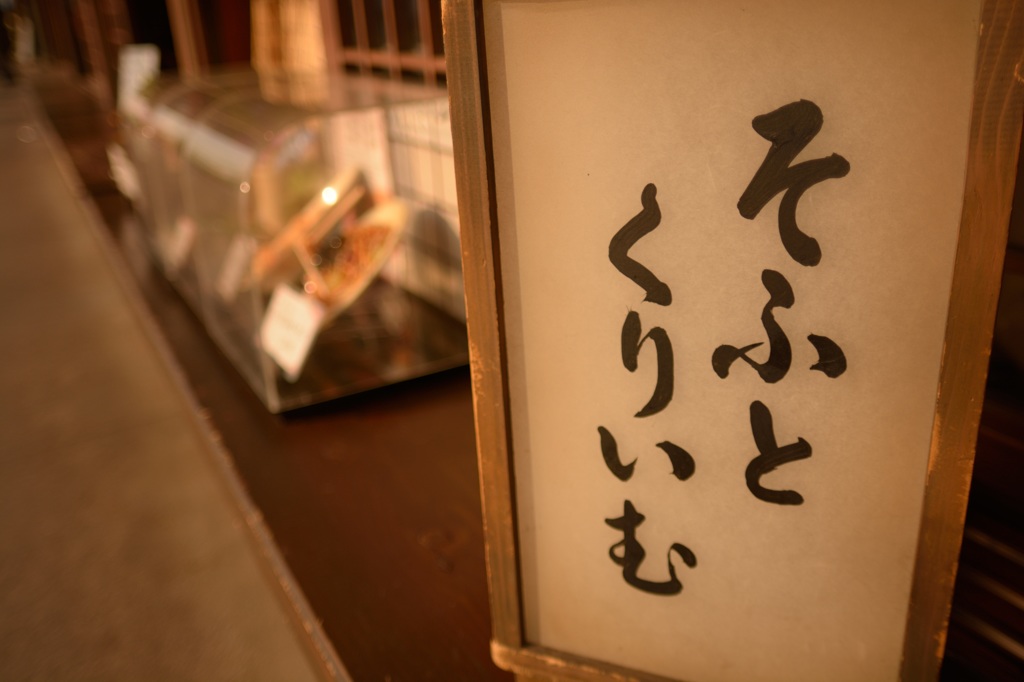 そふと
くりいむ